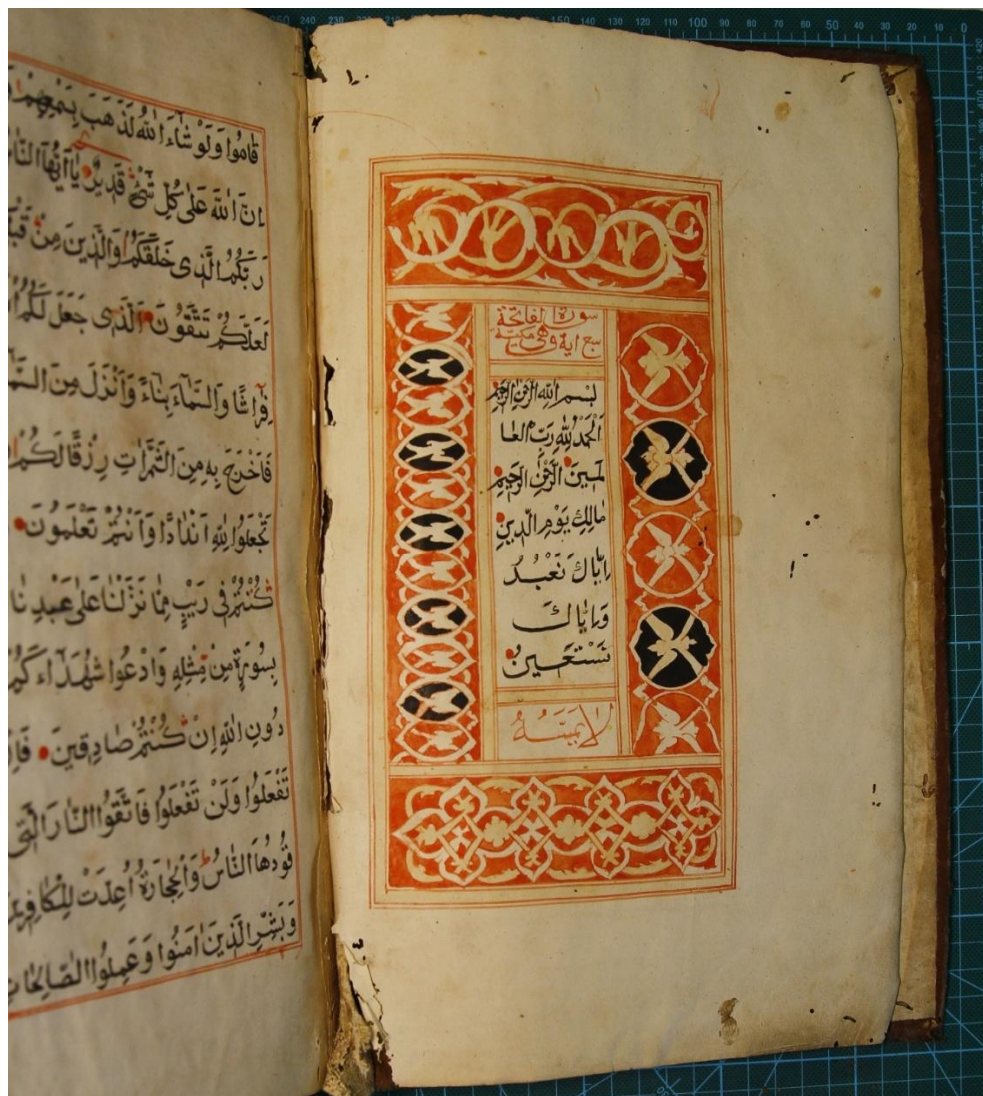 سورة الفاتحة
سبع اية وهي مكية
بسم الله الرحمن الرحيم
اَلْحَمْدُ لِلّٰهِ رَبِّ الْعَا
لَمِينَ الرَّحْمٰنِ الرَّحِيمِ
مَالِكِ يَوْمِ الدِّينِ
اِيَّاكَ نَعْبُدُ
وَاِيَّاكَ
نَسْتَعِينُ
لَا يَمَسُّهُ
قَامُوا وَلَوْ شَاءَ اللهُ لَذَهَبَ بِسَمْعِهِمْ
اِنَّ اللهَ عَلٰى كُلِّ شَیْءٍ قَدِيرٌ يَا اَيُّهَا النَّا
رَبَّكُمُ الَّذِى خَلَقَكُمْ وَالَّذِينَ مِنْ قَبْلِ
لَعَلَّكُمْ تَتَّقُونَ الَّذِى جَعَلَ لَكُمُ
فِرَاشًا وَالسَّمَاءَ بِنَاءً وَاَنْزَلَ مِنَ السَّمَ
فَاَخْرَجَ بِهِ مِنَ الثَّمَرَاتِ رِزْقًا لَكُمْ
تَجْعَلُوا لِلّٰهِ اَنْدَادًا وَاَنْتُمْ تَعْلَمُونَ
كُنْتُمْ فِى رَيْبٍ مِمَّا نَزَّلْنَا عَلٰى عَبْدِنَا
بِسُورَةٍ مِنْ مِثْلِهِ وَادْعُوا شُهَدَاءَكُمْ
دُونِ اللهِ اِنْ كُنْتُمْ صَادِقِينَ فَاِ
تَفْعَلُوا وَلَنْ تَفْعَلُوا فَاتَّقُوا النَّارَ الَّتِى
قُودُهَا النَّاسُ وَالْحِجَارَةُ اُعِدَّتْ لِلْكَافِرِينَ
وَبَشِّرِ الَّذِينَ اٰمَنُوا وَعَمِلُوا الصَّالِحَاتِ